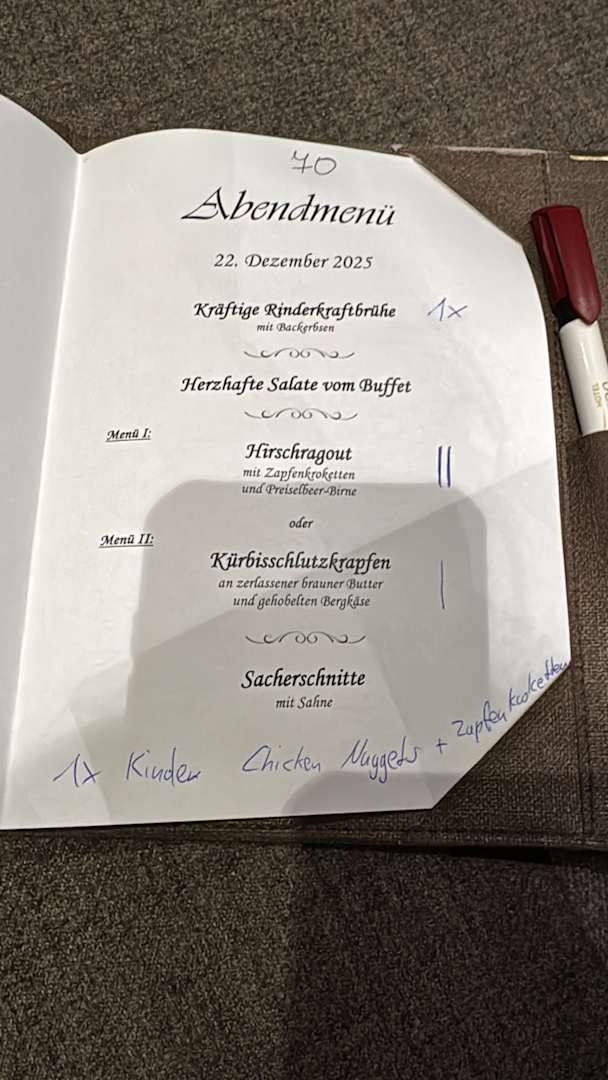 70
Abendmenü
22. Dezember 2025
Kräftige Rinderkraftbrühe 1x
mit Backerbsen
Herzhafte Salate vom Buffet
Menü I:
Hirschragout ||
mit Zapfenkroketten
und Preiselbeer-Birne
oder
Menü II:
Kürbisschlutzkrapfen |
an zerlassener brauner Butter
und gehobelten Bergkäse
Sacherschnitte
mit Sahne
1x Kinder Chicken Nuggets + Zapfenkroketten